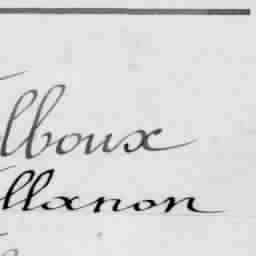 lboux
llanon